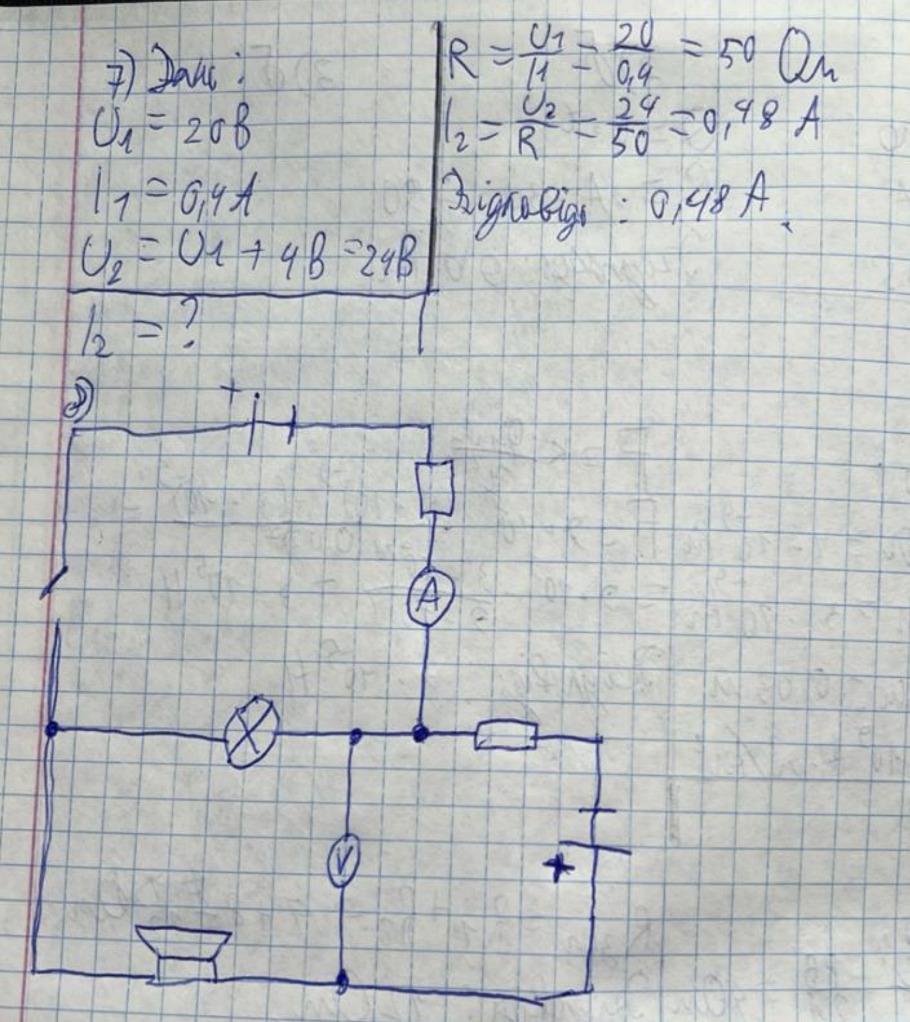 7) Дано:
U1 = 20В
I1 = 0,4А
U2 = U1 + 4В = 24В
I2 = ?
R = U1/I1 = 20/0,4 = 50 Ом
I2 = U2/R = 24/50 = 0,48 А
Відповідь: 0,48 А.
8)
+
А
V
+